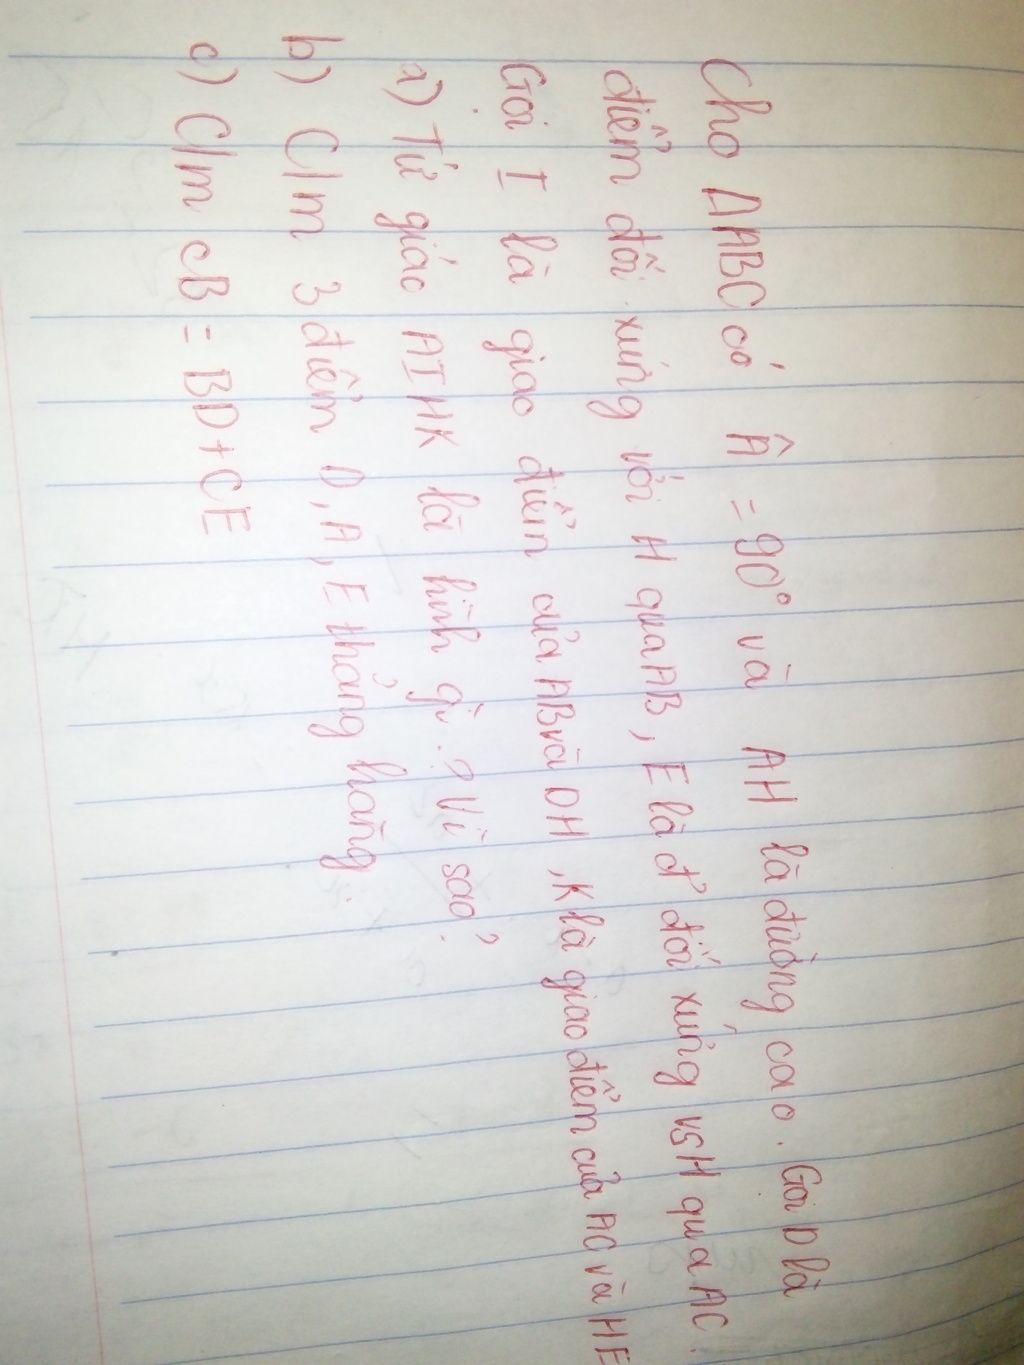 Cho ΔABC có Â = 90° và AH là đường cao. Gọi D là
điểm đối xứng với H qua AB, E là đ' đối xứng vs H qua AC.
Gọi I là giao điểm của AB và DH, K là giao điểm của AC và HE
a) Tứ giác AIHK là hình gì? Vì sao?
b) C/m 3 điểm D, A, E thẳng hàng.
c) C/m CB = BD + CE